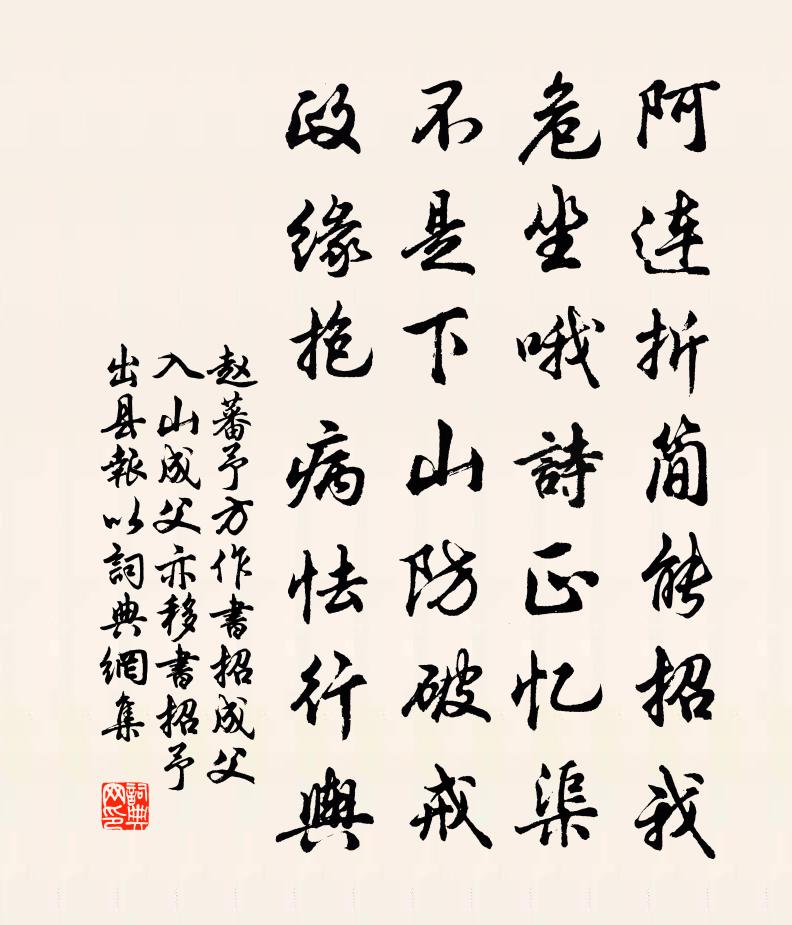 阿连折简能招我
危坐哦詩正忆渠
不是下山防破戒
政缘抱病怯行輿
赵蕃予方作書招成父
入山成父亦移書招予
出县報以詞典網集
詞典
网印